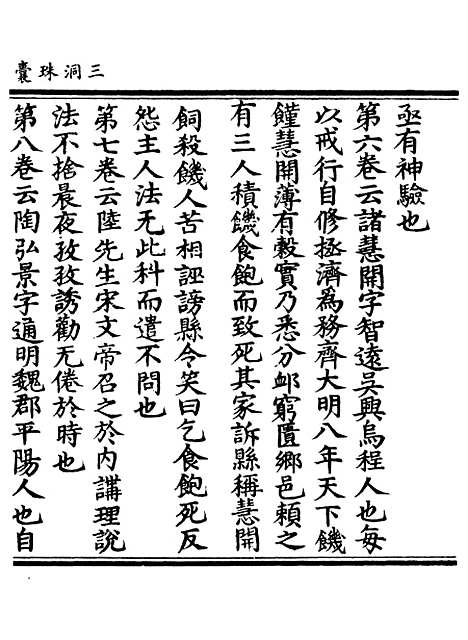 三洞珠囊
亟有神驗也
第六卷云諸慧開字智遠吳興烏程人也每
以戒行自修拯濟爲務齊大明八年天下饑
饉慧開薄有穀實乃悉分卹窮匱鄉邑賴之
有三人積饑食飽而致死其家訴縣稱慧開
飼殺饑人苦相誣謗縣令笑曰乞食飽死反
怨主人法无此科而遣不問也
第七卷云陸先生宋文帝召之於内講理說
法不捨晨夜孜孜誘勸无倦於時也
第八卷云陶弘景字通明魏郡平陽人也自